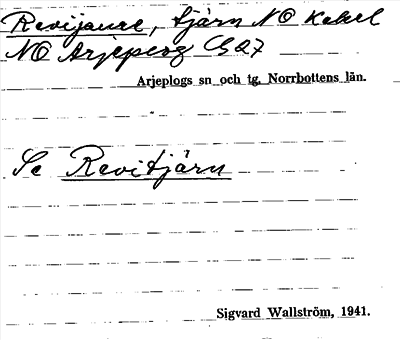 Revijaure, tjärn NO Kabel
NO Arjeplog G27
Arjeplogs sn och tg, Norrbottens län.
Se Revitjärn
Sigvard Wallström, 1941.